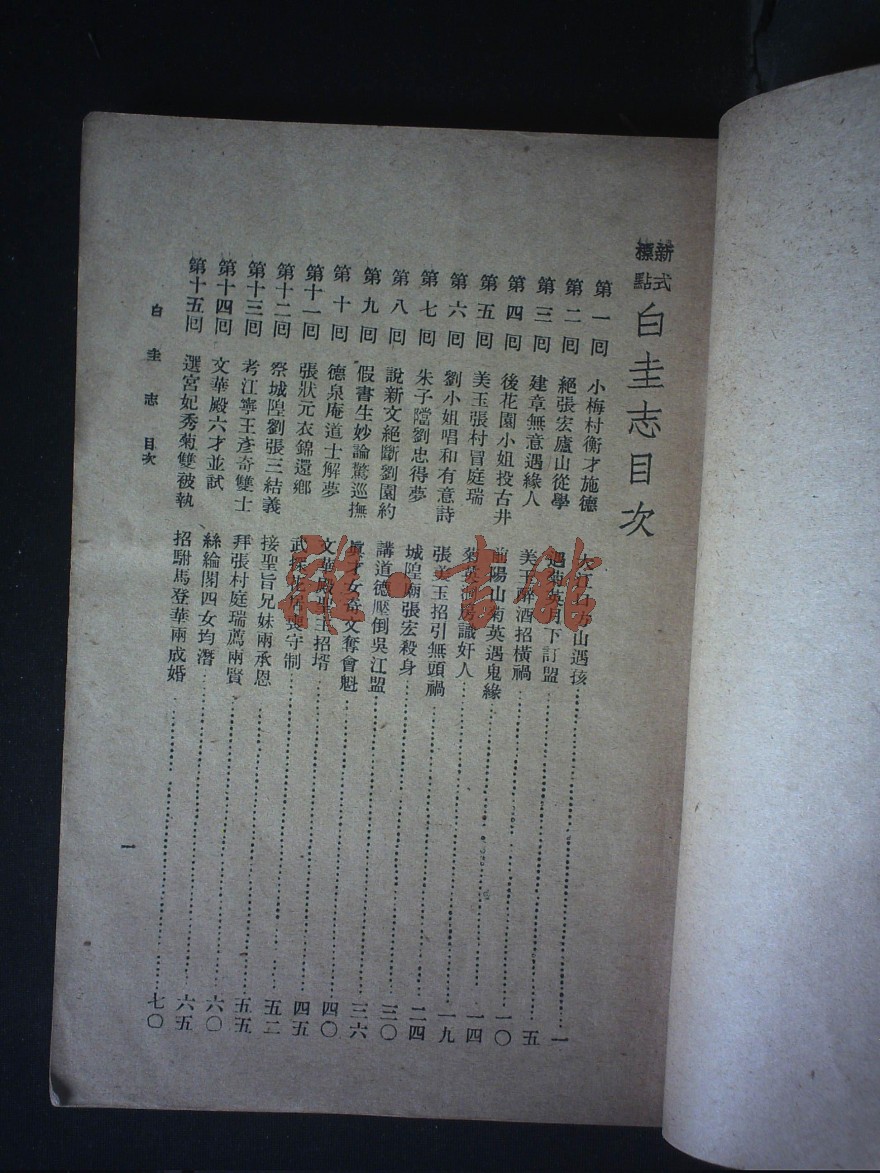 新式標點 白圭志目次
第一回 小梅村衡才施德 大江口方山遇孩 一
第二回 絕張宏廬山從學 遇菊英月下訂盟 五
第三回 建章無意遇緣人 美玉醉酒招橫禍 一〇
第四回 後花園小姐投古井 陽山菊英遇鬼緣 一四
第五回 美玉張村冒庭瑞 菊英洞房識奸人 一九
第六回 劉小姐唱和有意詩 張美玉招引無頭禍 二四
第七回 朱子隌劉忠得夢 城隍廟張宏殺身 三〇
第八回 說新文絕斷劉園約 講道德壓倒吳江盟 三六
第九回 假書生妙論驚巡撫 眞才女奇文奪會魁 四〇
第十回 德泉庵道士解夢 文華殿聖主招壻 四五
第十一回 張狀元衣錦還鄉 武探花居喪守制 五二
第十二回 祭城隍劉張三結義 接聖旨兄妹兩承恩 五五
第十三回 考江寧王彥奇雙士 拜張村庭瑞薦兩賢 六〇
第十四回 文華殿六才並試 絲綸閣四女均潛 六五
第十五回 選宮妃秀菊雙被執 招駙馬登華兩成婚 七〇
白圭志 目次
一
雜·書館